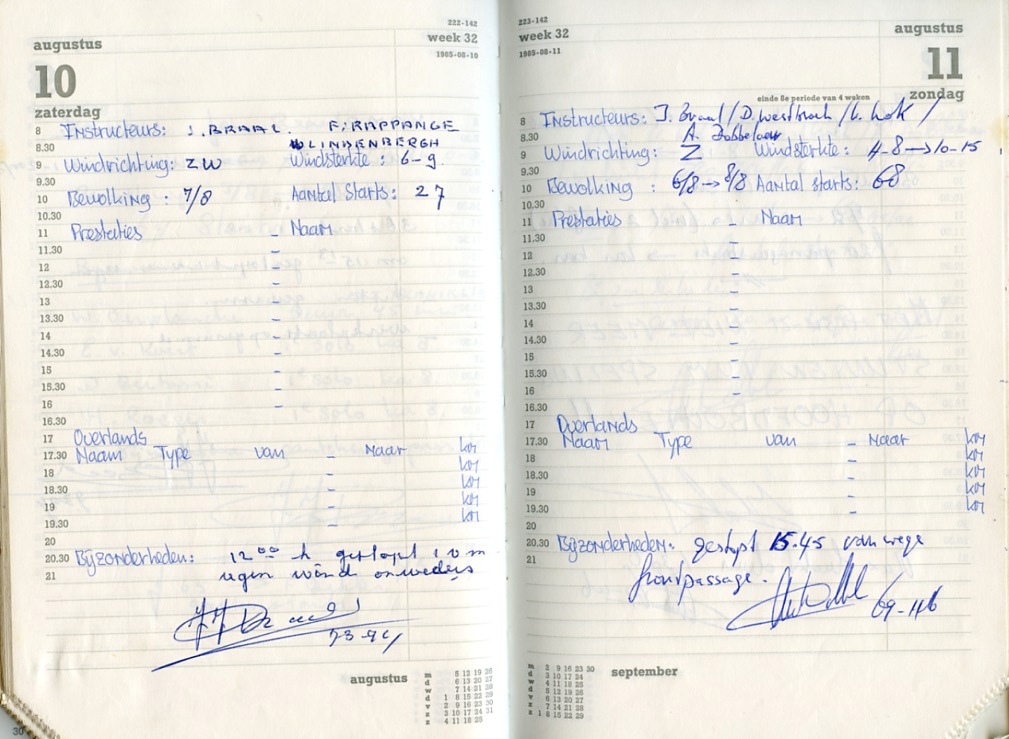 222-142
augustus
week 32
1985-08-10
10
zaterdag
8 Instructeurs: J. BRAAL. F. RAPPANGE
8.30 LINDENBERGH
9 Windrichting: ZW Windsterkte: 6-9
9.30
10 Bewolking: 7/8 Aantal Starts: 27
10.30
11 Prestaties - Naam
11.30 -
12 -
12.30 -
13 -
13.30 -
14 -
14.30 -
15 -
15.30 -
16 -
16.30
17 Overlands
17.30 Naam Type van - Naar km
18 - km
18.30 - km
19 - km
19.30 - km
20
20.30 Bijzonderheden: 12.00 h gestopt i v m
21 regen wind onweders
augustus
m 5 12 19 26
d 6 13 20 27
w 7 14 21 28
d 1 8 15 22 29
v 2 9 16 23 30
z 3 10 17 24 31
z 4 11 18 25
30
223-142
week 32
augustus
1985-08-11
11
einde 8e periode van 4 weken zondag
8 Instructeurs: J. Braal / D. Westbroek / L. Hok /
8.30 A. Dobbelaer
9 Windrichting: Z Windsterkte: 4-8 → 10-15
9.30
10 Bewolking : 6/8 → 8/8 Aantal starts: 68
10.30
11 Prestaties - Naam
11.30 -
12 -
12.30 -
13 -
13.30 -
14 -
14.30 -
15 -
15.30 -
16 -
16.30
17 Overlands
17.30 Naam Type van - Naar km
18 - km
18.30 - km
19 - km
19.30 - km
20
20.30 Bijzonderheden: gestopt 15.45 vanwege
21 frontpassage.
september
m 2 9 16 23 30
d 3 10 17 24
w 4 11 18 25
d 5 12 19 26
v 6 13 20 27
z 7 14 21 28
z 1 8 15 22 29